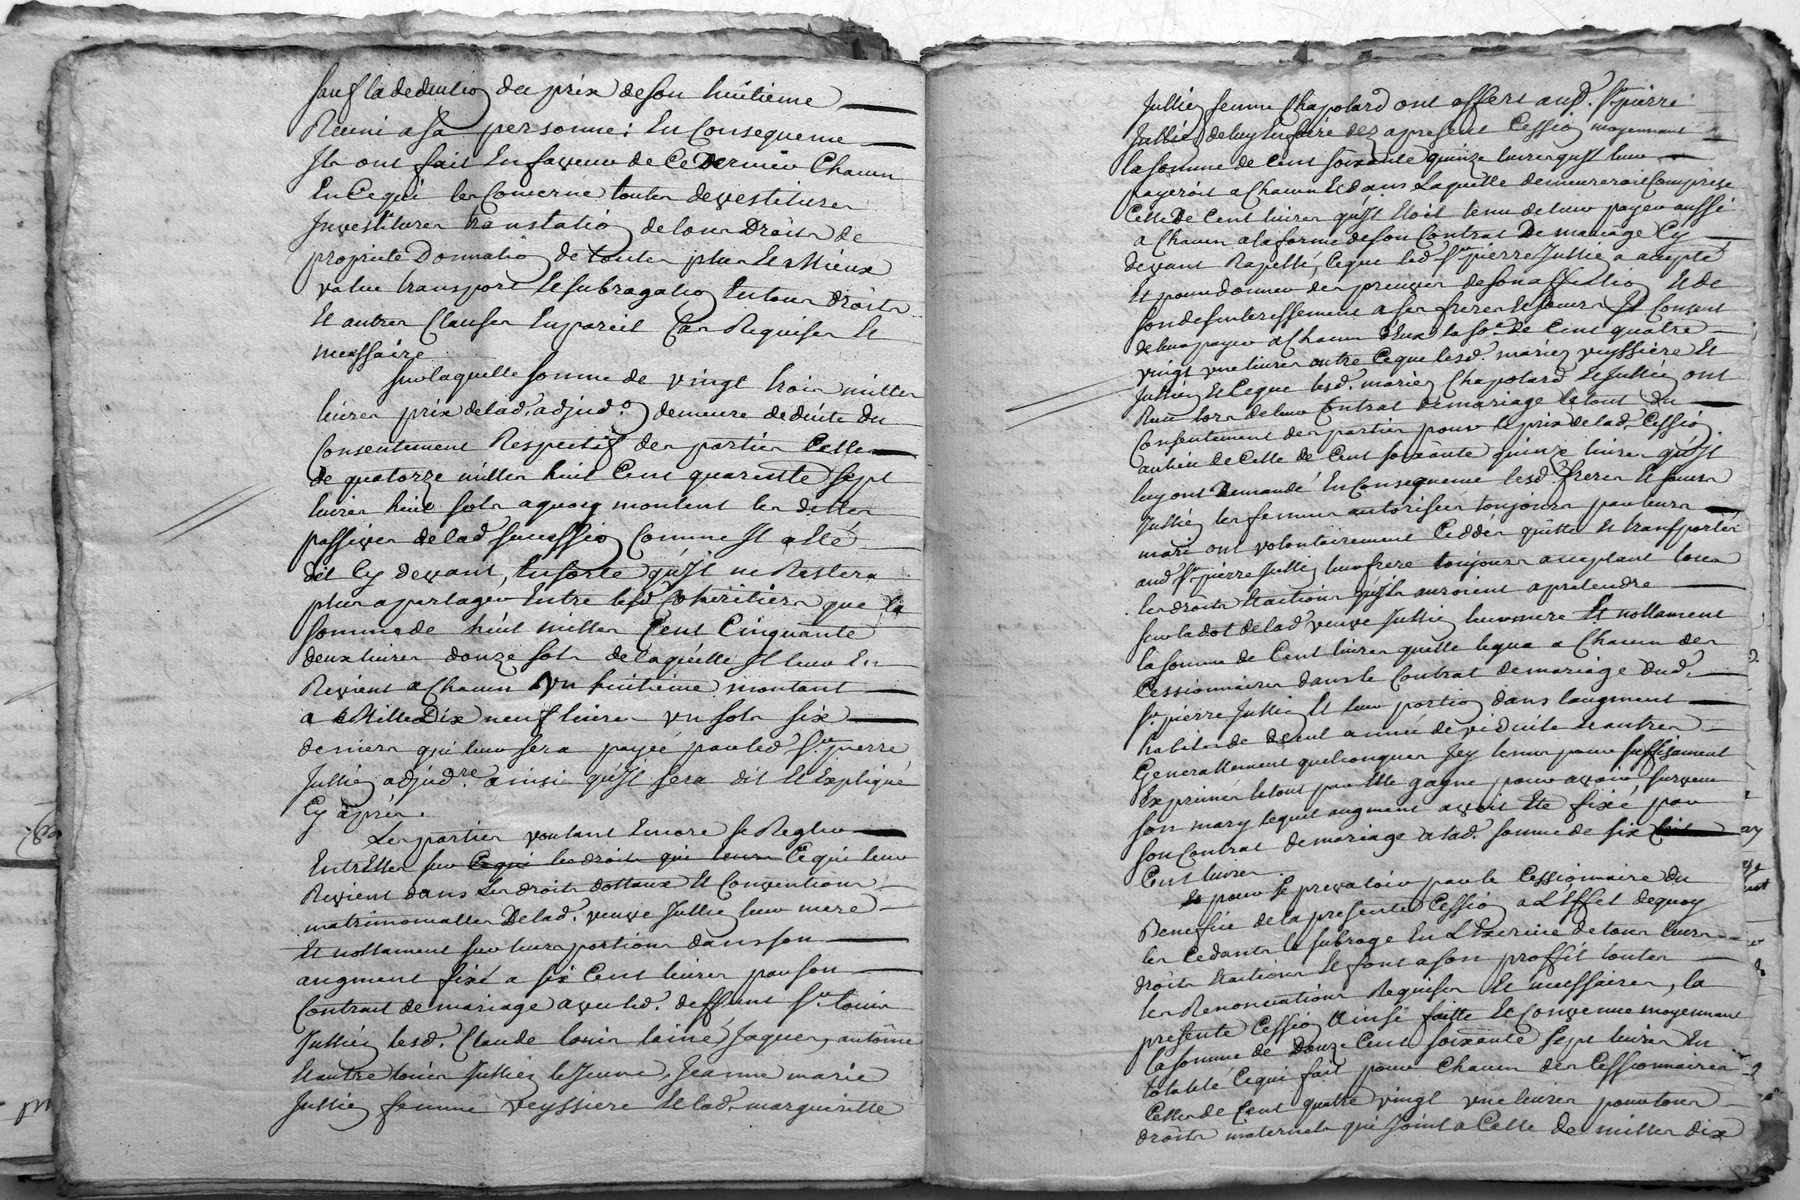 sauf la deduction du prix de son huitieme
Reuni a sa personne; En Consequence
Ils ont fait En faveur de Ce Dernier Chacun
En Ce qui les Concerne toutes devestitures
Investitures translation de leurs Droits de
propriete Donnation de toutes plus Et Mieux
value transport Et subrogation En tous droits
Et autres Clauses En pareil Cas Requises Et
necessaire
Sur laquelle somme de vingt trois milles
livres prix de lad. adjud.on demeure deduite du
Consentement Respectif des parties Celle
de quatorze milles huit Cent quarente sept
livres huit sols a quoy montent les dettes
passives de lad succession Comme Il a été
dit Cy devant, En sorte qu'Il ne Restera
plus a partager Entre lesd Coheritiers que la
somme de huit milles Cent Cinquante
deux livres douze sols de laquelle Il leur En
Revient a Chacun un huitieme montant
a Mille Dix neuf livres un sols six
deniers qui leur sera payée par led Sr. pierre
Jullien adjud.re ainsi qu'Il sera dit Et Expliqué
Cy après.
Les parties voulant Encore se Regler
Entr'Elles sur Ce qui les droits qui leurs Ce qui leur
Revient dans Les droits dottaux Et Conventions
matrimonialles De lad. veuve Jullien leur mere
Et nottament sur leurs portions dans son
augment fixé a six Cent livres par son
Contrat de mariage avec led. deffunt Sr. louis
Jullien lesd. Claude louis l'ainé, Jaques, antoine
Et autre louis Jullien le Jeune, Jeanne marie
Jullien femme veyssiere Et lad. marguerite
Jullien femme Chapolard ont offert aud. Sr. pierre
Jullien de luy En faire dez apresent Cession moyennant
la somme de Cent soixante quinze livres qu'Il leur
payeroit a Chacun Et dans Laquelle demeureroit Comprise
Celle De Cent livres qu'Il Etoit tenu de leur payer aussi
a Chacun a la forme de son Contrat De mariage Cy
devant Rapellé, Ce que led Sr. pierre Jullien a accepté
Et pour donner des preuves de son affection Et de
son desinteressement a ses freres Et soeurs Il Consent
de leur payer a Chacun d'Eux la So.e De Cent quatre
vingt une livres outre Ce que lesd. mariez veyssiere Et
Jullien Et Ce que lesd. mariez Chapolard Et Jullien ont
Reçu lors de leur Contrat de mariage Et tout du
Consentement des parties pour le prix de lad. Cession
au lieu de Celle de Cent soixante quinze livres qu'Ils
luy ont Demandé En Consequence lesd. freres Et soeurs
Jullien les femmes autorisées toujours par leurs
mari ont volontairement Ceddés quitté Et transporté
aud Sr. pierre Jullien leur frere toujours acceptant tous
les droits Et actions qu'Ils auroient a pretendre
sur la dot de lad veuve Jullien leur mere Et nottament
la somme de Cent livres qu'elle legua a Chacun des
Cessionnaires dans le Contrat de mariage dud.
Sr. pierre Jullien Et leur portion dans l'augment
habits de deuil année de viduité Et autres
Generallement quelconques Icy tenus pour suffisament
Exprimés Et tout par Elle gagné pour avoir survecu
son mary lequel augment avoit Eté fixé par
son Contrat de mariage a lad. somme de six
Cent livres.
pour se prevaloir par le Cessionnaire du
Benefice de la presente Cession a L'Effet de quoy
les Cedants le subroge En L'Exercice de tous leurs
droits Et actions Et font a son proffit toutes
les Renonciations Requises Et necessaires, la
presente Cession Ainsi faitte Et Convenue moyennant
la somme de Douze Cent soixante sept livres En
totalité Ce qui fait pour Chacun des Cessionnaires
Celle de Cent quatre vingt une livres pour tous
droits maternels qui Joint a Celle de milles dix